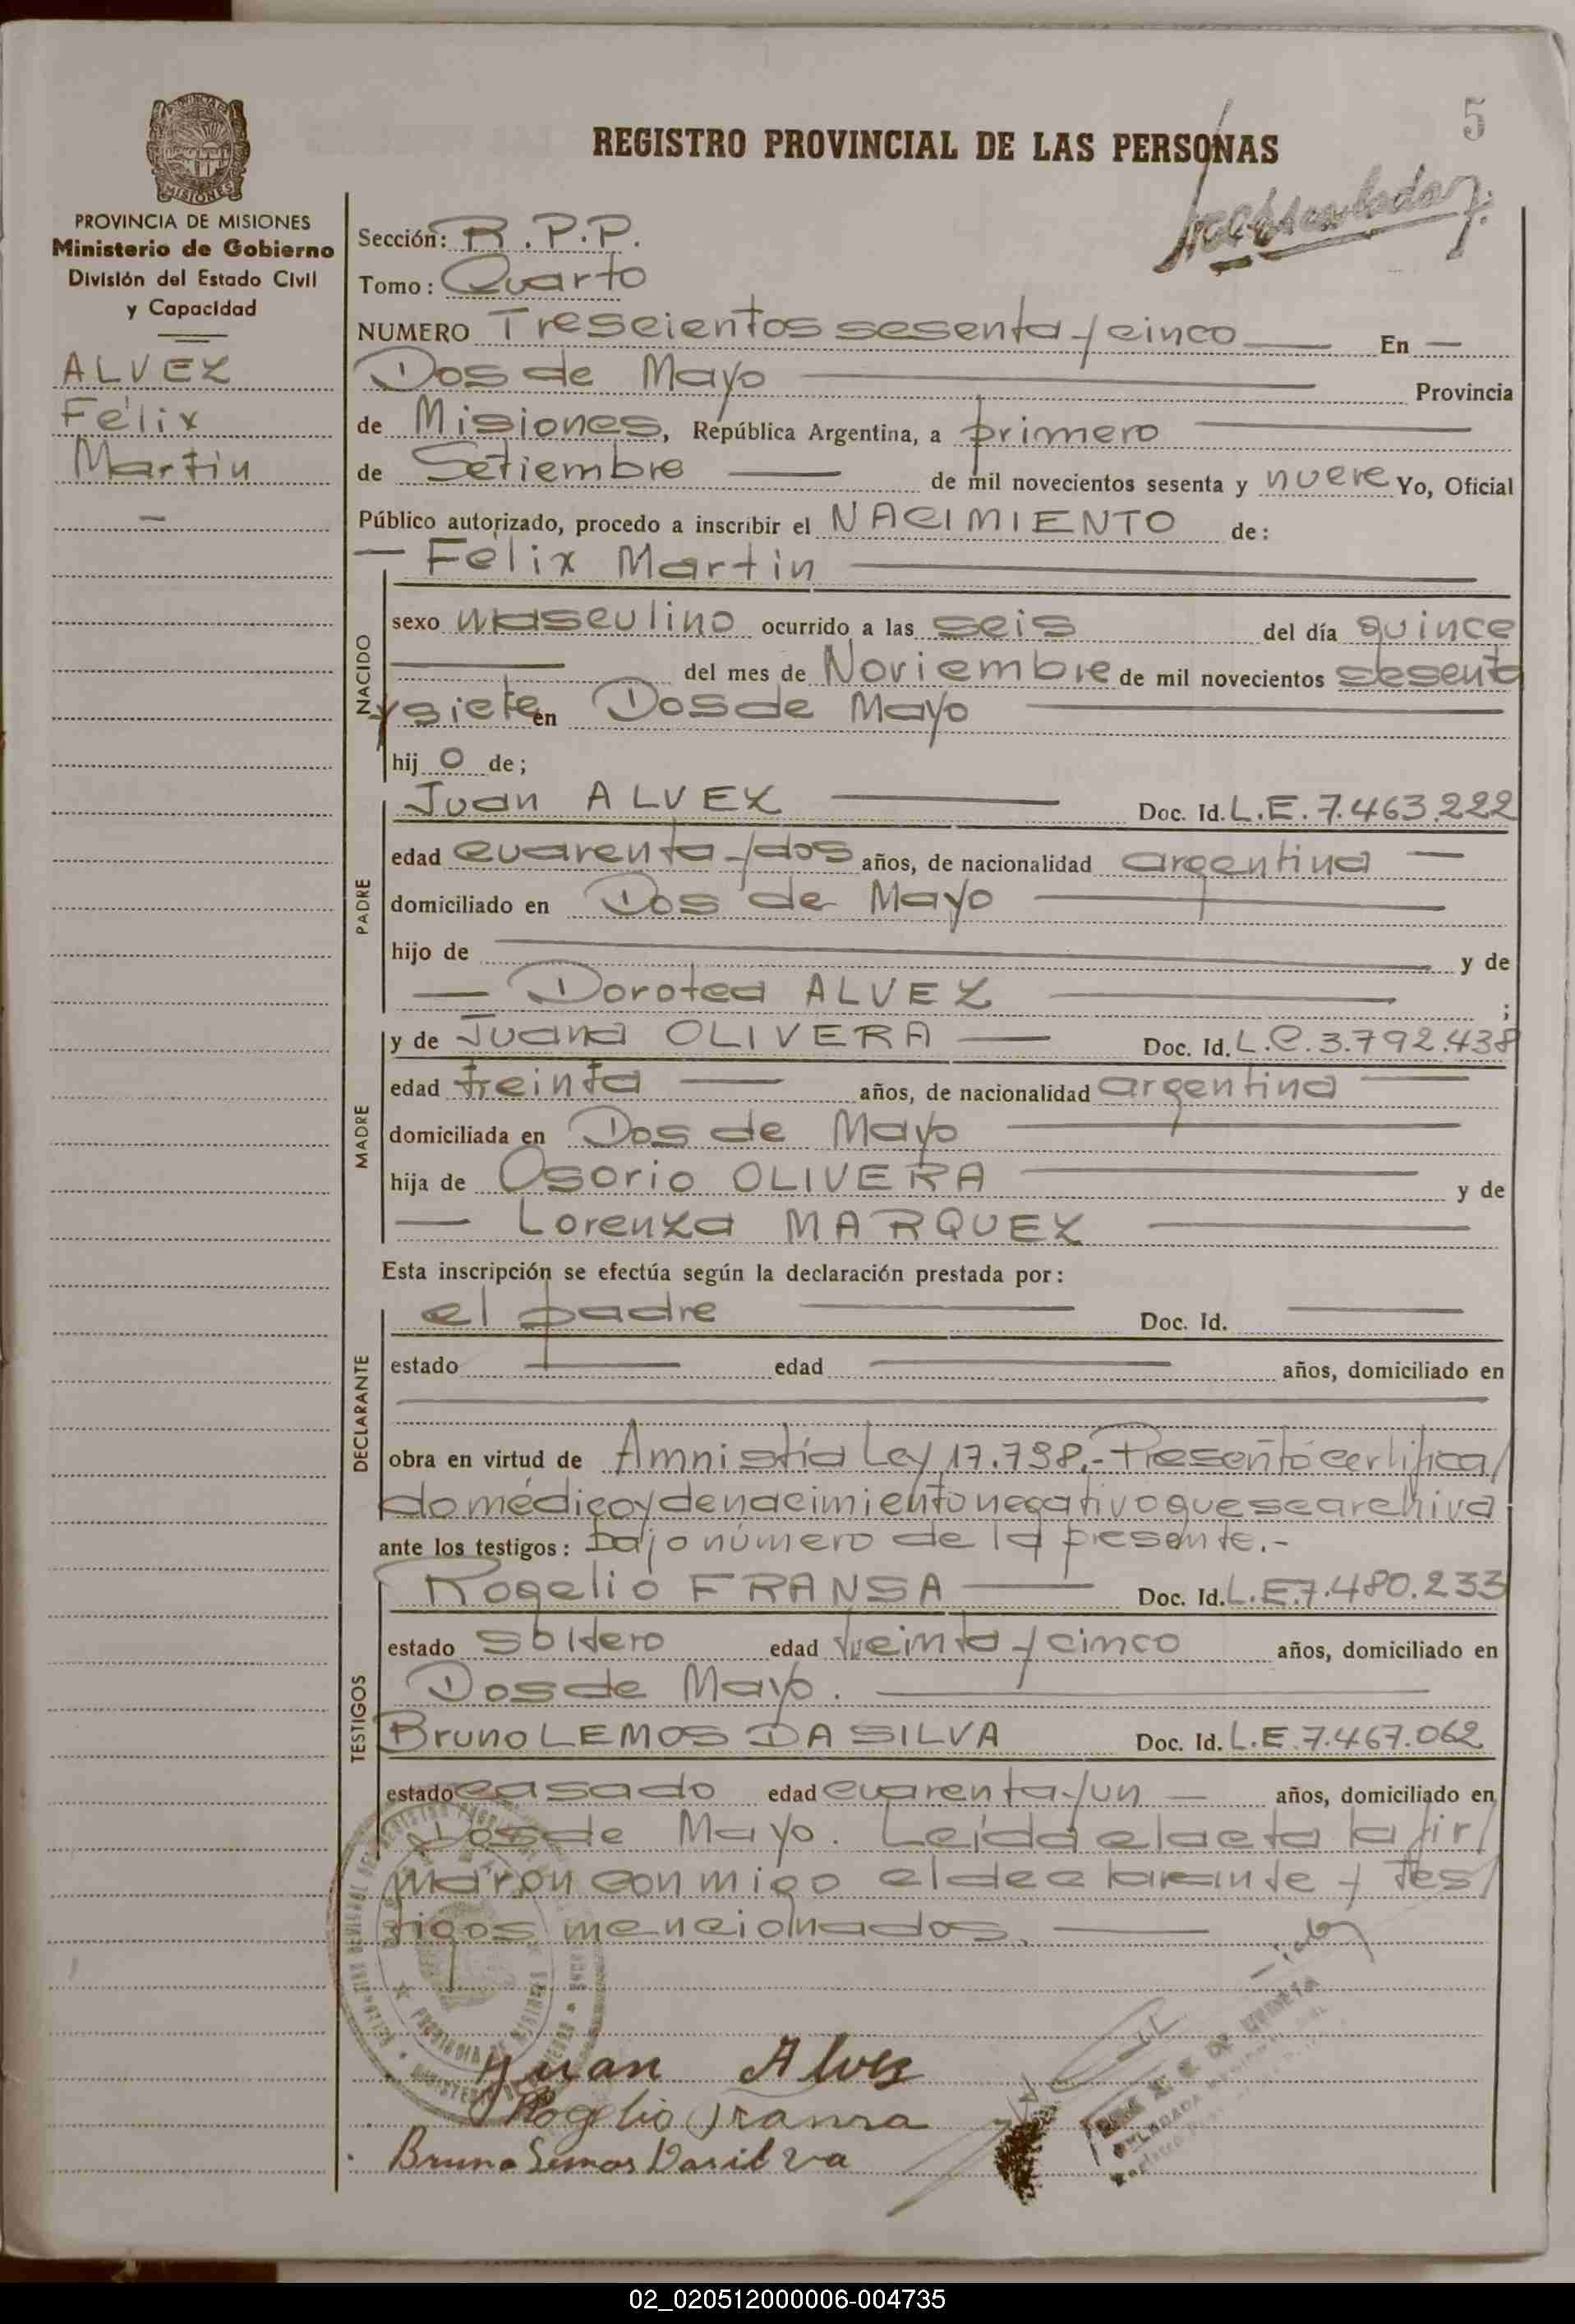 5
REGISTRO PROVINCIAL DE LAS PERSONAS
MISIONES
PROVINCIA DE MISIONES
Ministerio de Gobierno
División del Estado Civil
y Capacidad
ALVEZ
Félix
Martin
Sección: R.P.P.
Tomo: Cuarto
NUMERO Trescientos sesenta y cinco En
Dos de Mayo Provincia
de Misiones, República Argentina, a primero
de Setiembre de mil novecientos sesenta y nueve Yo, Oficial
Público autorizado, procedo a inscribir el NACIMIENTO de:
Félix Martin
NACIDO
sexo masculino ocurrido a las seis del día quince
del mes de Noviembre de mil novecientos sesenta
y siete en Dos de Mayo
hij o de;
PADRE
Juan ALVEZ Doc. Id. L.E. 7.463.222
edad cuarenta y dos años, de nacionalidad argentina
domiciliado en Dos de Mayo
hijo de y de
Dorotea ALVEZ ;
MADRE
y de Juana OLIVERA Doc. Id. L.C. 3.792.438
edad treinta años, de nacionalidad argentina
domiciliada en Dos de Mayo
hija de Osorio OLIVERA y de
Lorenza MARQUEZ
Esta inscripción se efectúa según la declaración prestada por:
DECLARANTE
el padre Doc. Id.
estado edad años, domiciliado en
obra en virtud de Amnistía Ley 17.798.- Presentó certifica/
do médico y de nacimiento negativo que se archiva
ante los testigos: bajo número de la presente.-
TESTIGOS
Rogelio FRANSA Doc. Id. L.E.7.480.233
estado soltero edad treinta y cinco años, domiciliado en
Dos de Mayo.
Bruno LEMOS DA SILVA Doc. Id. L.E 7.467.062
estado casado edad cuarenta y un años, domiciliado en
Dos de Mayo. Leída el acta la fir/
maron conmigo el declarante y tes/
tigos mencionados.
Juan Alvez
Rogelio Fransa
Bruno Lemos Dasilva
02_020512000006-004735